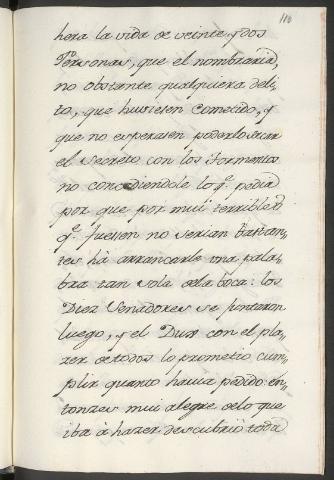 110
hera la vida de veinte, y dos
Personas, que el nombraria,
no obstante qualquiera deli,
to, que huviesen cometido, y
que no esperasen poderlo sacar
el Secreto con los tormentos
no concediendole lo q.e pedia
por que por mui terribles
q.e fuessen no serian bastan,
tes hà arrancarle una pala,
bra tan sola dela boca: los
Diez Senadores se juntaron
luego, y el Dux con el pla,
zer de todos lo prometio cum,
plir quanto havia pedido: en,
tonzes mui alegre delo que
iba à hazer descubriò toda